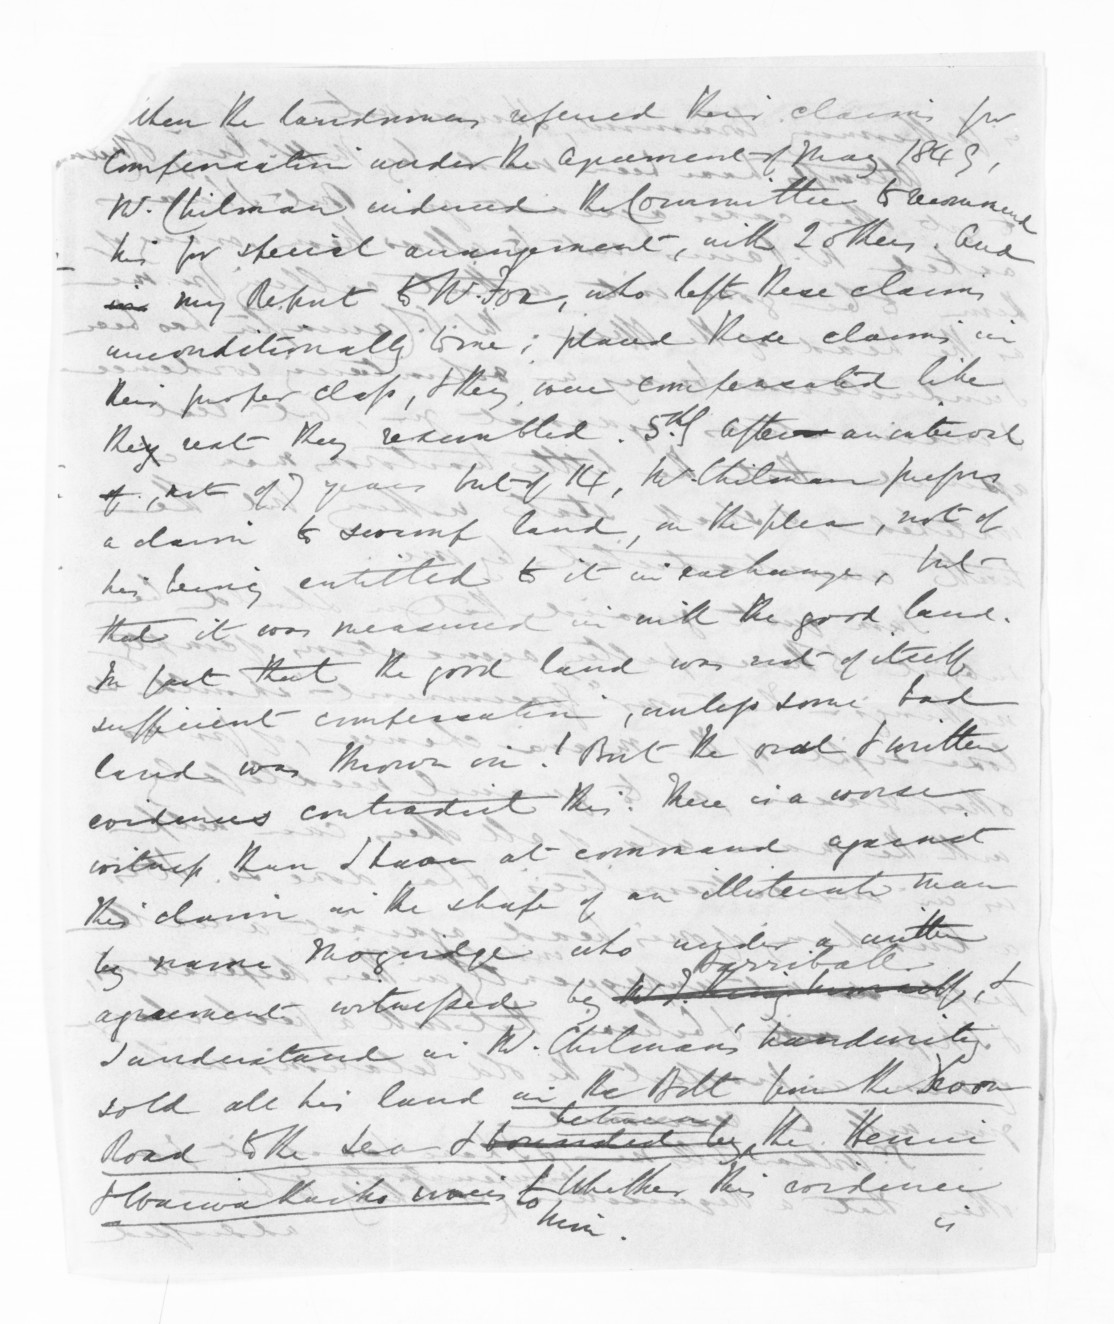 when the landowners referred their claims for
compensation under the agreement of May 1849,
Mr. Chilman induced the Committee to recommend
his for special arrangement, with 2 others. And
in my Report to Mr. Fox, who left these claims
unconditionally to me; placed these claims in
their proper class, & they were compensated like
the rest they resembled. 5thly After an interval
of, not of 7 years but of 14, Mr. Chilman prefers
a claim to swamp land, on the plea, not of
his being entitled to it in exchange, but
that it was measured in with the good land.
In fact that the good land was not of itself
sufficient compensation, unless some bad
land was thrown in! But the oral & written
evidences contradict this. There is a worse
witness than I have at command against
this claim in the shape of an illiterate man
by name Mogridge who under a written
agreement witnessed by Mr J. King himself, Darriball &
I understand in Mr. Chilman's handwriting
sold all his land in the Bell from the Devon
Road to the sea & bounded by between the Henui
& Waiwakaiho rivers to him. Whether this evidence
is